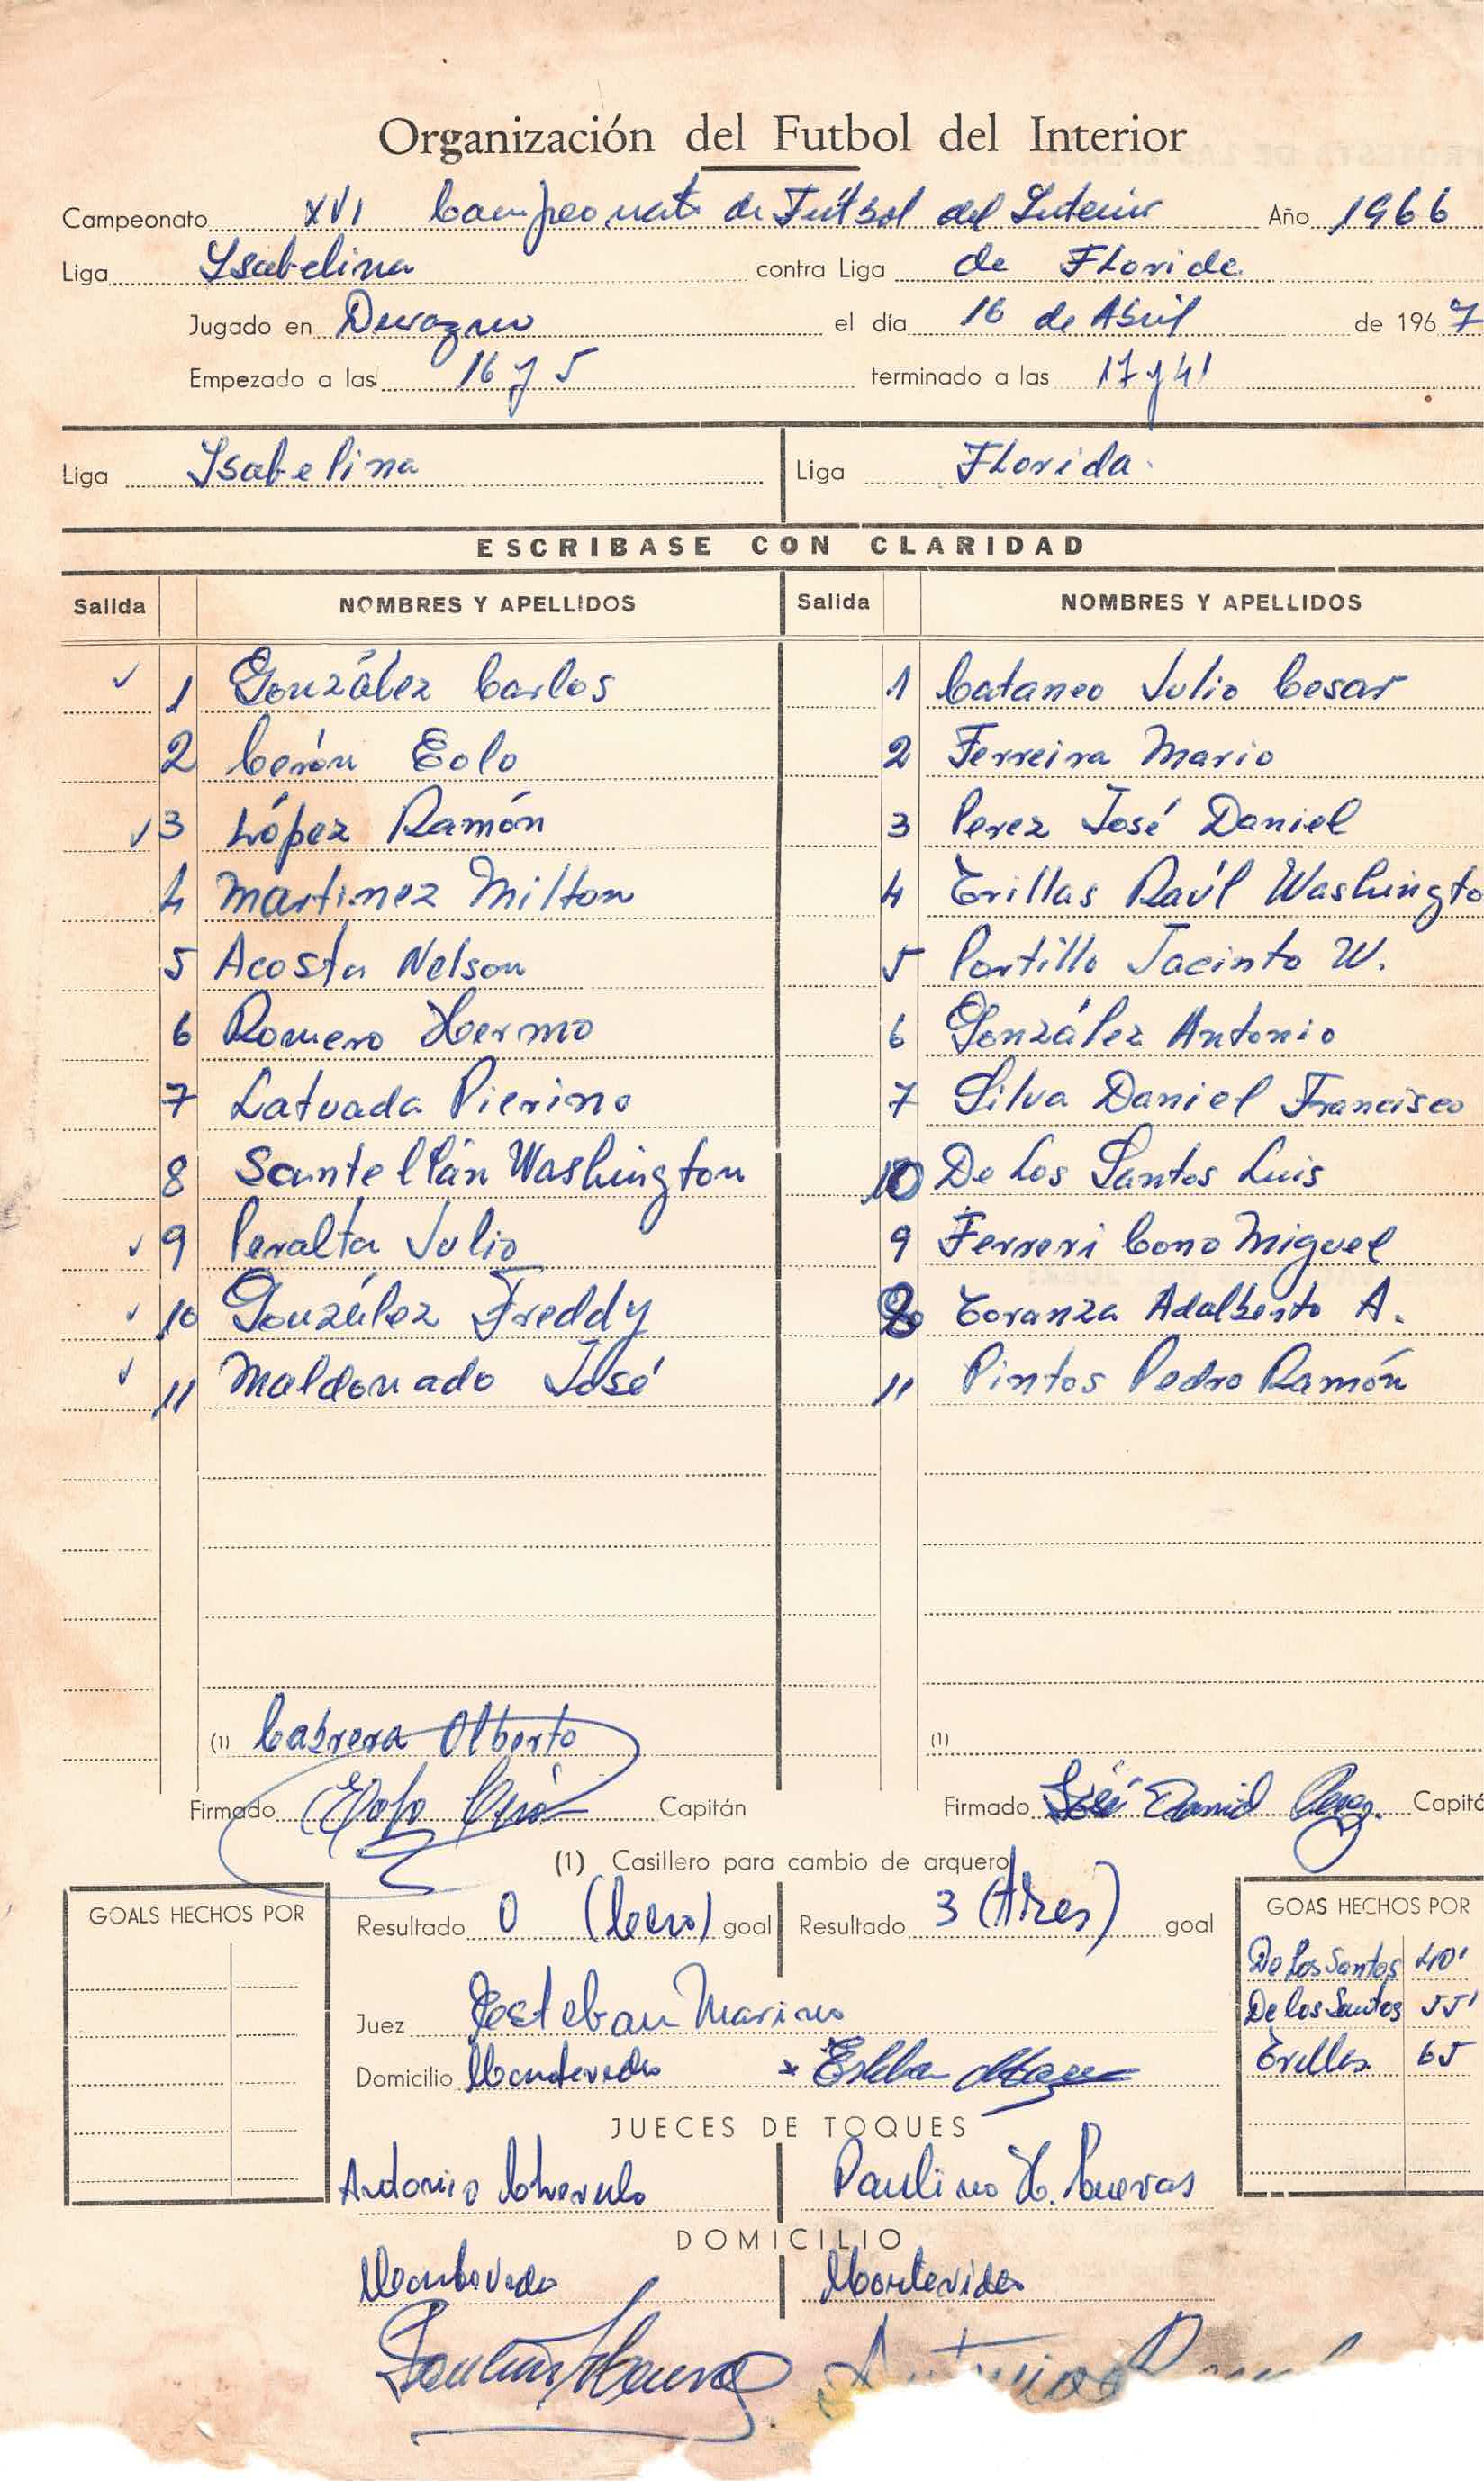 Organización del Futbol del Interior
Campeonato XVI Campeonato de Futbol del Interior Año 1966
Liga Ysabelina contra Liga de Florida
Jugado en Durazno el día 16 de Abril de 1967
Empezado a las 16 y 5 terminado a las 17 y 41
Liga Ysabelina Liga Florida
ESCRIBASE CON CLARIDAD
Salida NOMBRES Y APELLIDOS Salida NOMBRES Y APELLIDOS
✓ 1 González Carlos 1 Cataneo Julio Cesar
2 Cerón Eolo 2 Ferreira Mario
✓ 3 López Ramón 3 Perez José Daniel
4 Martinez Milton 4 Trillas Raúl Washingto
5 Acosta Nelson 5 Portillo Jacinto W.
6 Romero Hermo 6 González Antonio
7 Latuada Pierino 7 Silva Daniel Francisco
8 Santellán Washington 10 De Los Santos Luis
✓ 9 Peralta Julio 9 Ferreri Cono Miguel
✓ 10 González Freddy 8 Toranza Adalberto A.
✓ 11 Maldonado José 11 Pintos Pedro Ramón
(1) Cabrera Olberto (1)
Firmado Eolo Cerón Capitán Firmado José Daniel Perez Capitá
(1) Casillero para cambio de arquero
GOALS HECHOS POR Resultado 0 (Cero) goal Resultado 3 (Tres) goal GOAS HECHOS POR
De Los Santos 40'
De los Santos 55'
Juez Esteban Marino
Trillas 65
Domicilio Montevideo Esteban Marino
JUECES DE TOQUES
Antonio Paulino H. Cuevas
DOMICILIO
Montevideo Montevideo